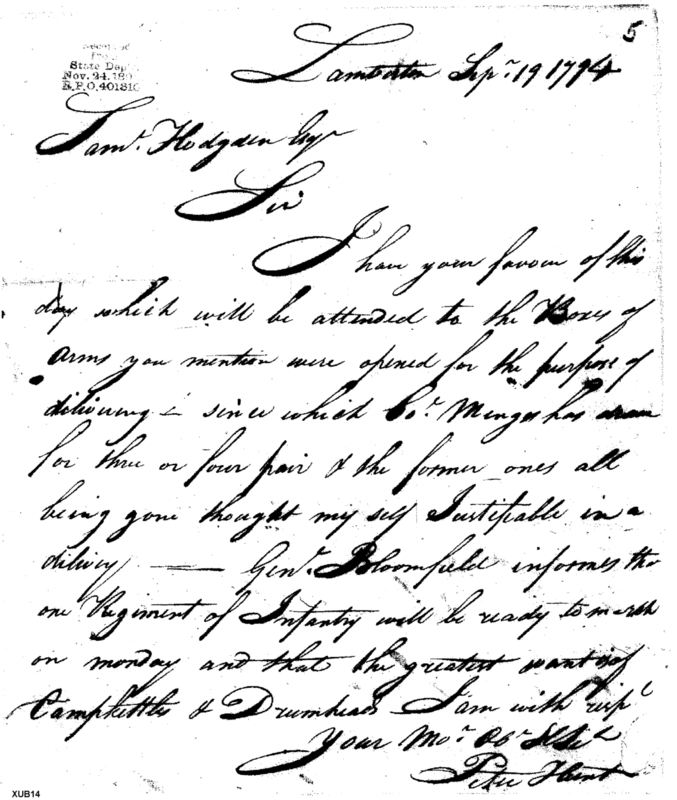 5
State Dep
Nov. 24. 189
R.P.O. 401810
Lamberton Sepr. 19 1794
Saml. Hodgden Esqr
Sir
I have your favour of this
day which will be attended to the Boxes of
Arms you mention were opened for the purpose of
dilivering — since which Cor. Menges has drawn
for three or four pair & the former ones all
being gone thought my self Justifiable in a
dilivy —— Genr. Bloomfield informes tha
one Regiment of Infantry will be ready to march
on monday and that the greatest want is of
Campkettles & Drumheads I am with respt
Your Mor. Obr
Peter Hunt
XUB14